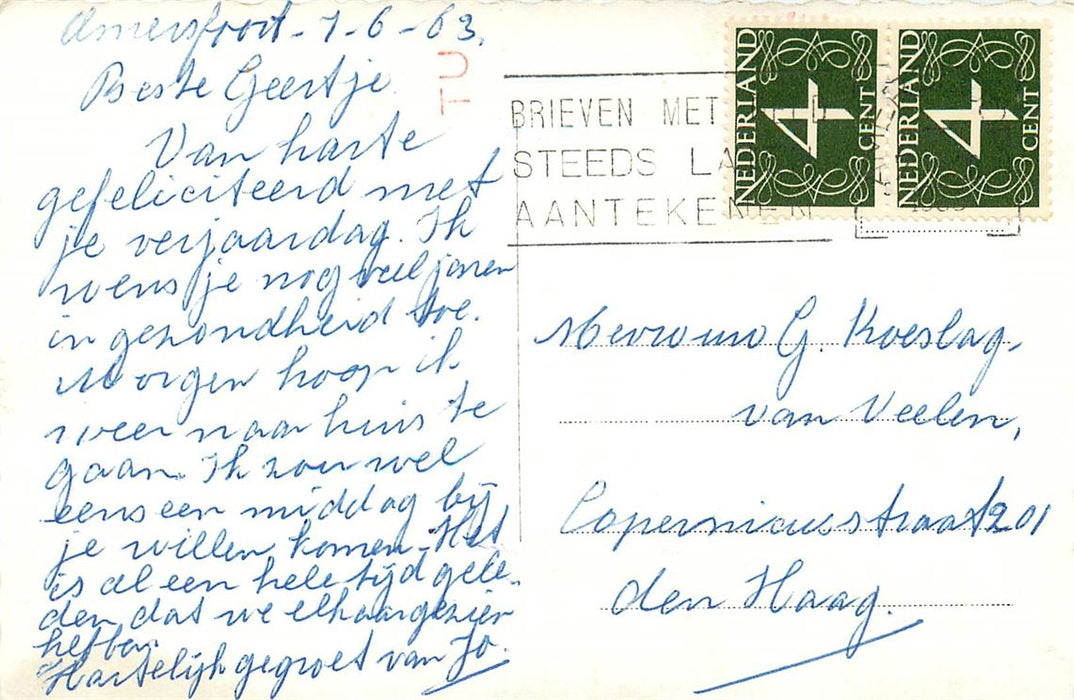 Amersfoort - 7-6-63.
Beste Geertje.
Van harte
gefeliciteerd met
je verjaardag. Ik
wens je nog veel jaren
in gezondheid toe.
Morgen hoop ik
weer naar huis te
gaan. Ik zou wel
eens een middag bij
je willen komen. Het
is al een hele tijd gele-
den dat we elkaar gezien
hebben.
Hartelijk gegroet van Jo.
TU
BRIEVEN MET
STEEDS LA
AANTEKENEN
NEDERLAND
4
CENT
NEDERLAND
4
CENT
Mevrouw G. Koeslag-
van Veelen,
Copernicusstraat 201
den Haag.